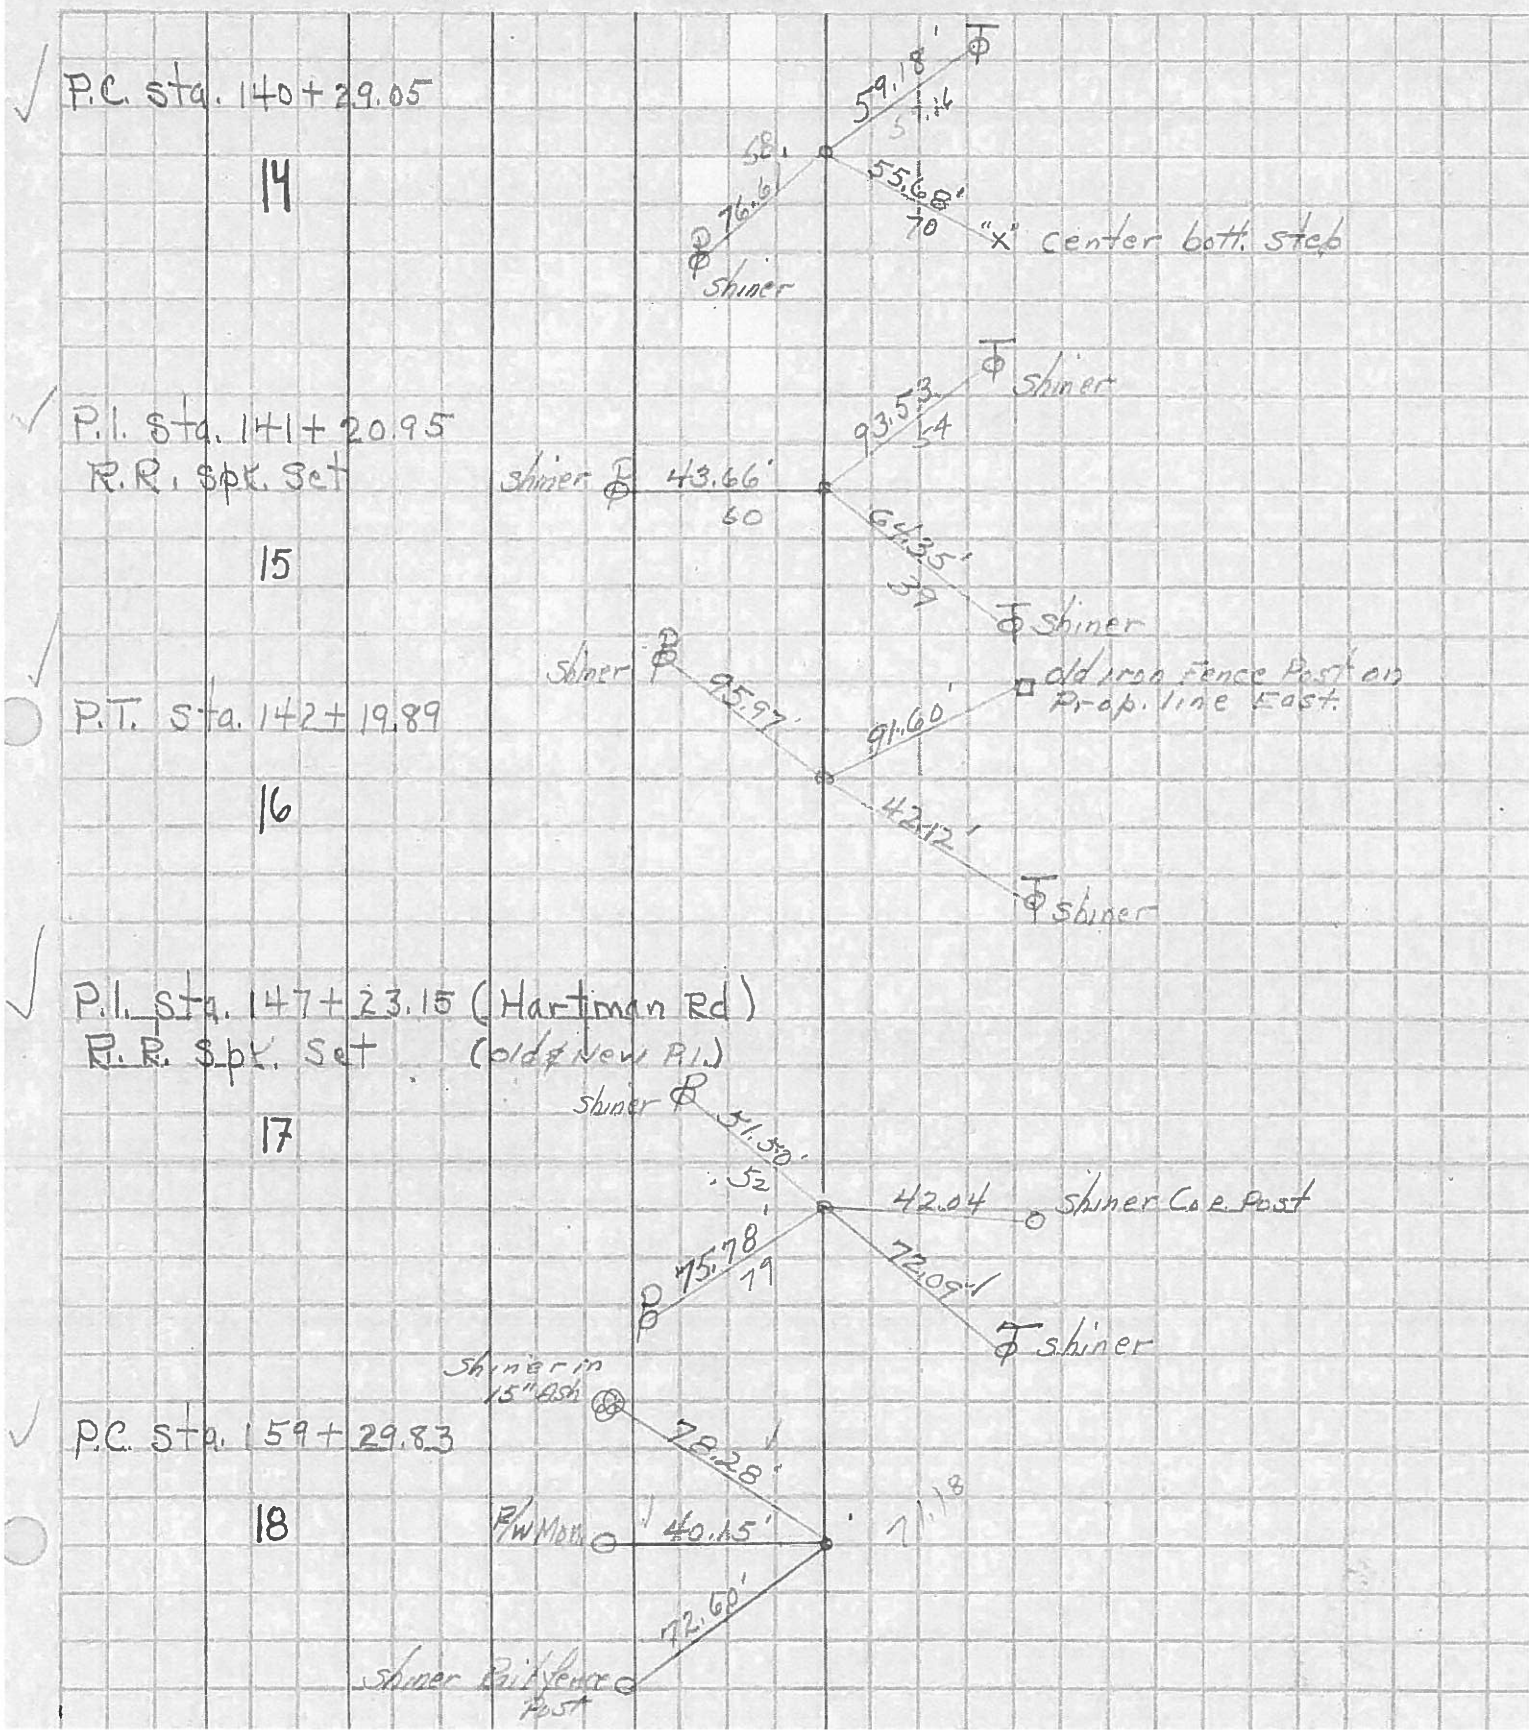 P.C. sta. 140+29.05
14
59.18'
58.
76.61
55.68'
70
"X" center bott. step
shiner
P.I. Sta. 141+20.95
R.R. Spk. Set
15
shiner
93.53
54
shiner
43.66'
60
64.35'
39
shiner
P.T. sta. 142+19.89
16
shiner
95.97'
91.60'
old iron Fence Post on
Prop. line East.
42.12'
shiner
P.I. Sta. 147+23.15 (Hartman Rd)
R.R. Spk. Set (old & New P.I.)
17
shiner
51.50'
.52
42.04
shiner Cor. Post
75.78'
79
72.09'
shiner
P.C. Sta. 159+29.83
18
shiner in
15" Ash
78.28'
71.18
R/W Mon.
40.15'
72.60'
shiner Rail fence
Post